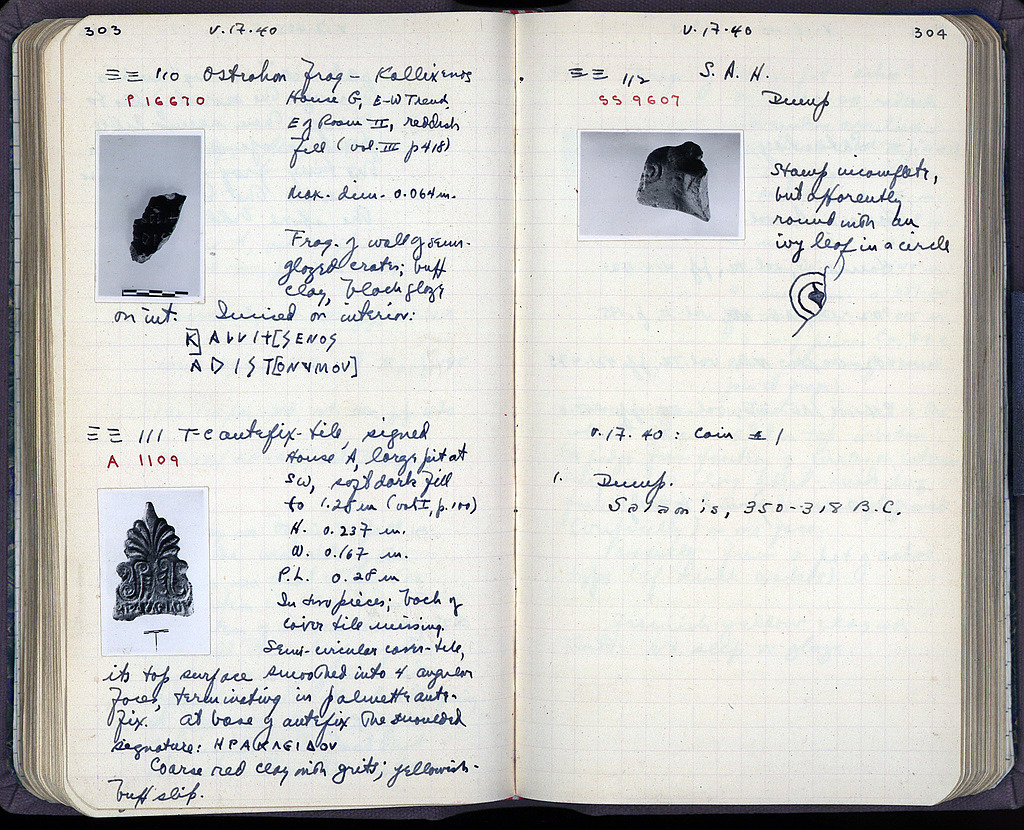 303
V.17.40
ΞΞ 110 Ostrakon Frag - Kallixenos
P 16670
House G, E-W Trench,
E of Room II, reddish
fill (vol. III p 418)
Max. dim. 0.064 m.
Frag. of wall of semi-
glazed crater; buff
clay, black glaze
on int. Incised on interior:
[K]ΑLLIX[SENOS
ΑDIST[ONVMOV]
ΞΞ 111 T-C antefix-tile, signed
A 1109
House A, large pit at
SW, soft dark fill
to 1.25 m (vol I, p. 100)
H. 0.237 m.
W. 0.167 m.
P.L. 0.28 m
In two pieces; back of
cover tile missing.
Semi-circular cover-tile,
its top surface smoothed into 4 angular
faces, terminating in palmette ante-
fix. At base of antefix the moulded
signature: ΗΡΑΚΛΕΙΔΟΥ
Coarse red clay with grits; yellowish-
buff slip.
ΗΡΑΚΛΕΙΔΟΥ
V.17.40
304
ΞΞ 112 S.A.H.
SS 9607
Dump
Stamp incomplete,
but apparently
round with an
ivy leaf in a circle
V.17.40 : Coin # 1
1. Dump.
Salamis, 350-318 B.C.